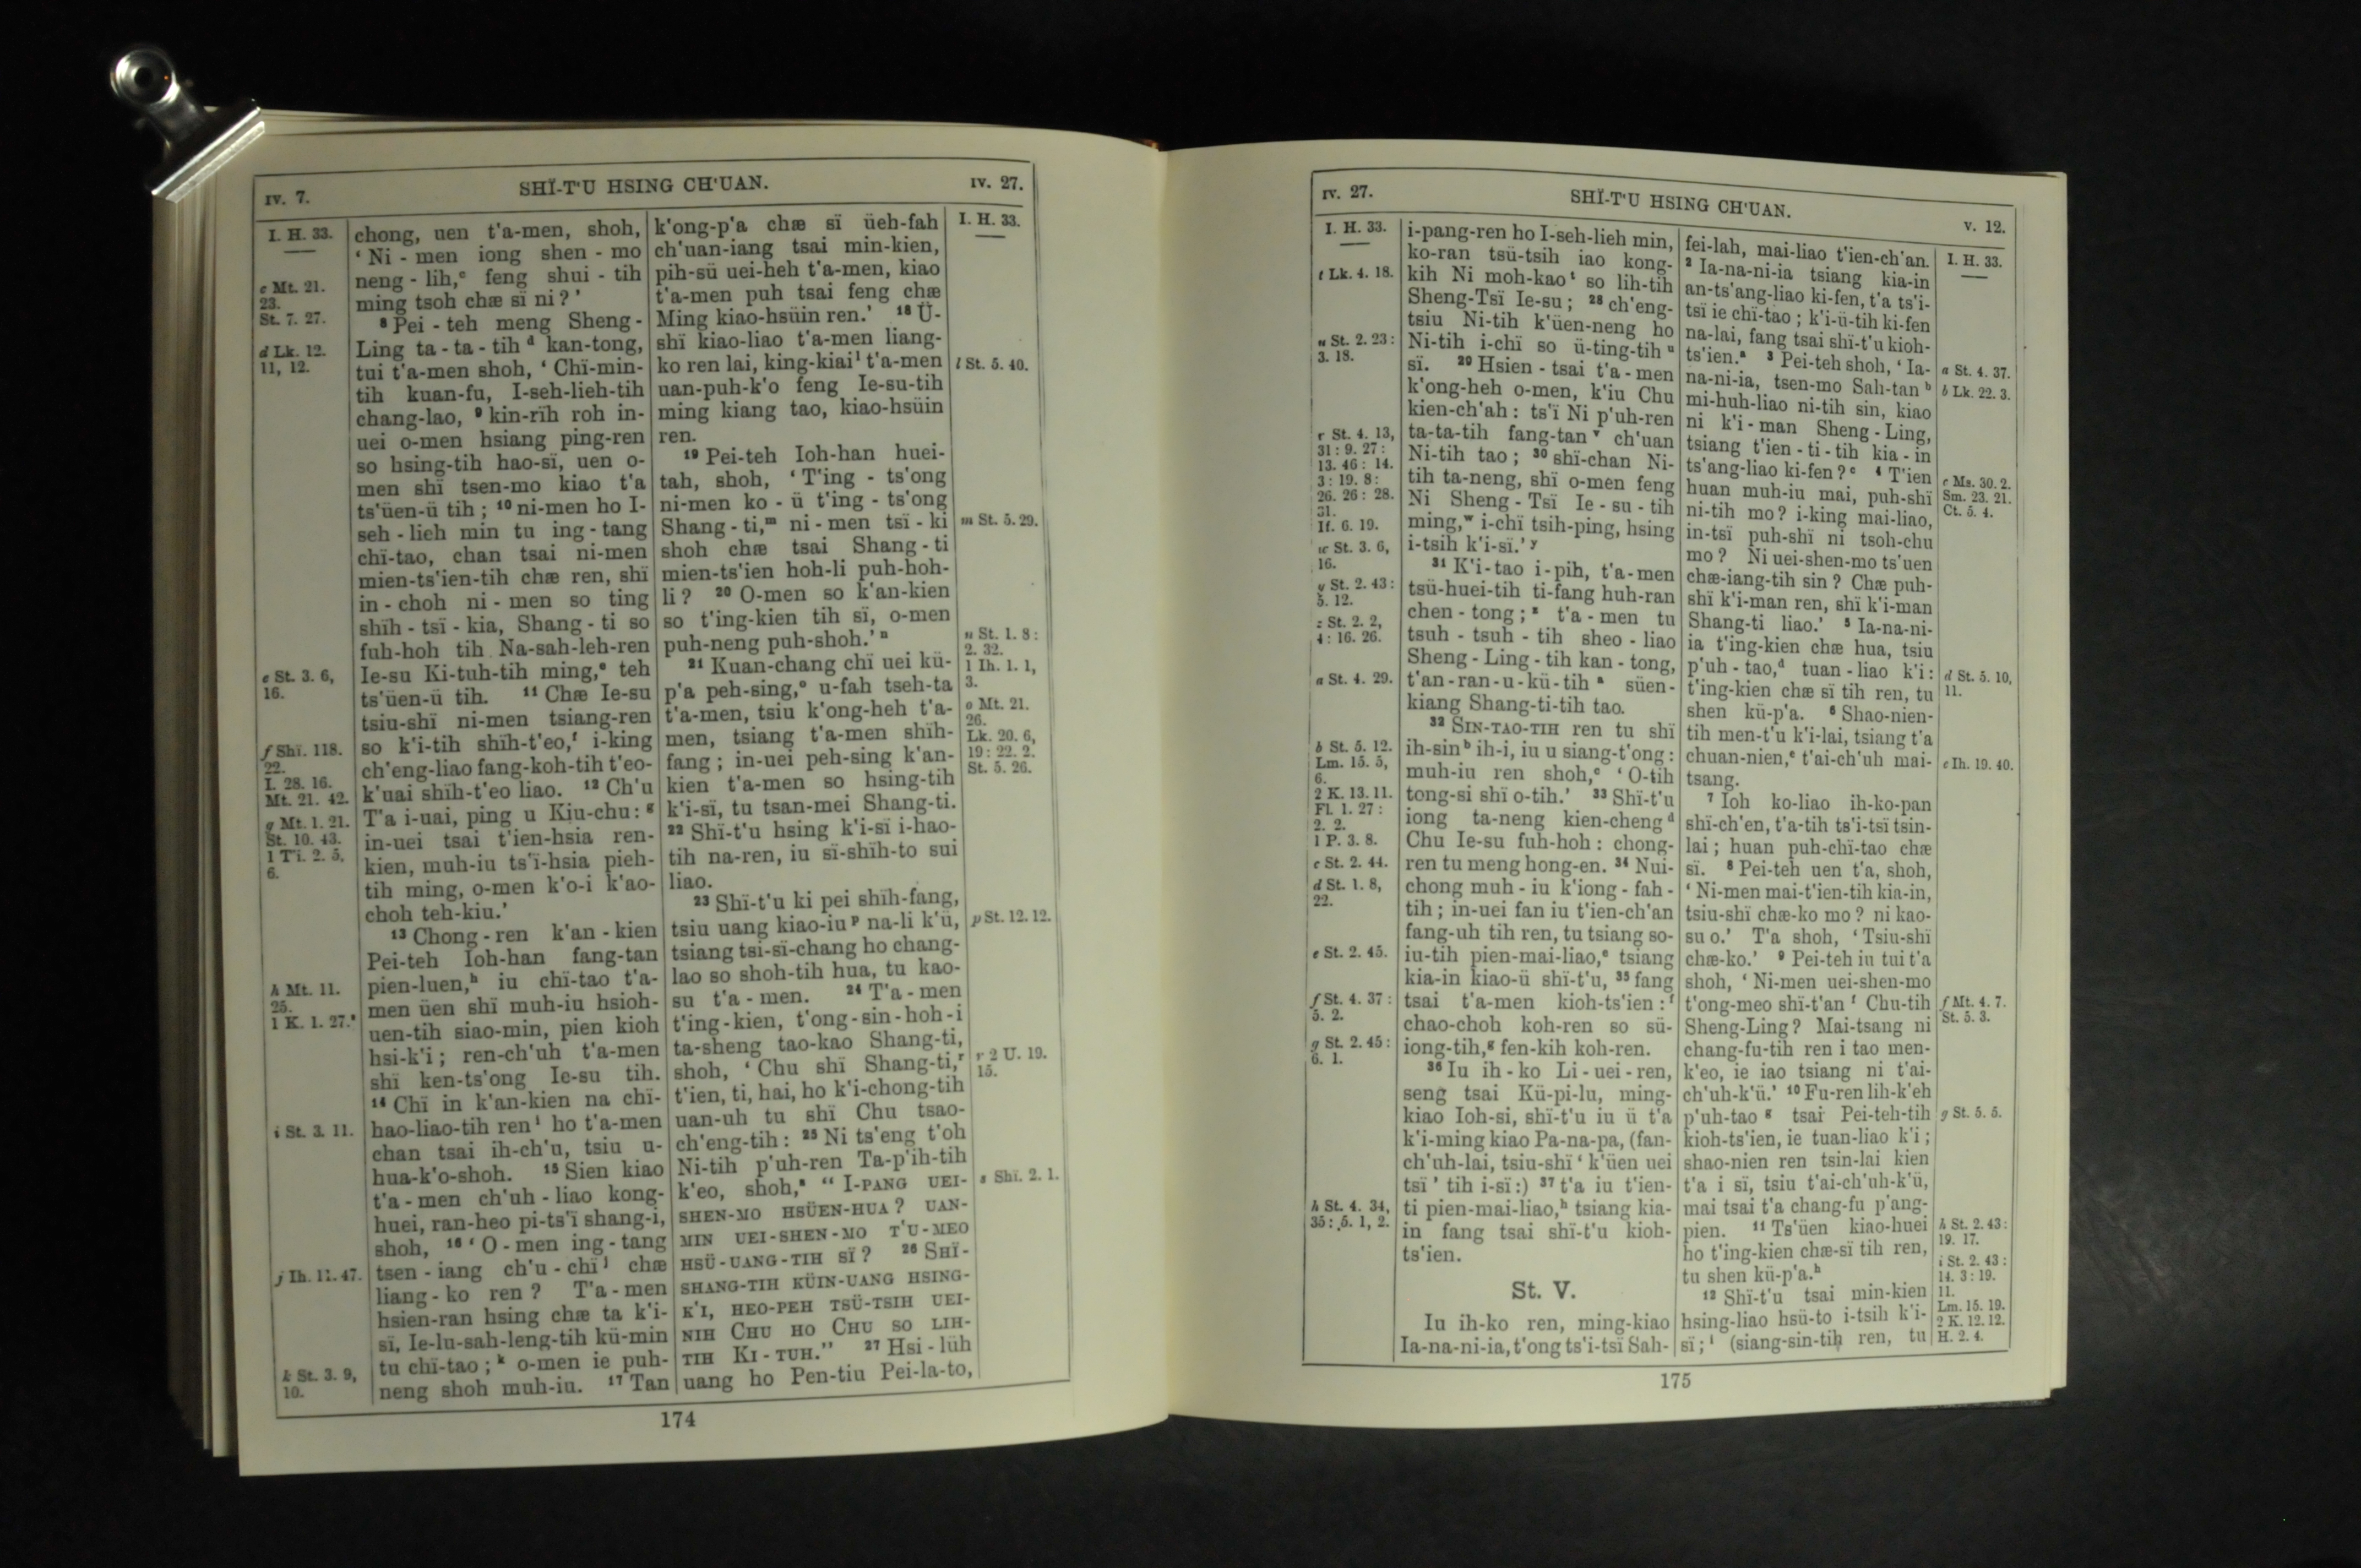 IV. 7.
SHÏ-T'U HSING CH'UAN.
IV. 27.
I. H. 33.
c Mt. 21.
23.
St. 7. 27.
d Lk. 12.
11, 12.
e St. 3. 6,
16.
f Shï. 118.
22.
I. 28. 16.
Mt. 21. 42.
g Mt. 1. 21.
St. 10. 43.
1 Ti. 2. 5,
6.
h Mt. 11.
25.
1 K. 1. 27.
i St. 3. 11.
j Ih. 11. 47.
k St. 3. 9,
10.
chong, uen t'a-men, shoh,
'Ni - men iong shen - mo
neng - lih,ᶜ feng shui - tih
ming tsoh chæ sï ni?'
⁸ Pei - teh meng Sheng-
Ling ta - ta - tih ᵈ kan-tong,
tui t'a-men shoh, 'Chï-min-
tih kuan-fu, I-seh-lieh-tih
chang-lao, ⁹ kin-rïh roh in-
uei o-men hsiang ping-ren
so hsing-tih hao-sï, uen o-
men shï tsen-mo kiao t'a
ts'üen-ü tih; ¹⁰ ni-men ho I-
seh - lieh min tu ing - tang
chï-tao, chan tsai ni-men
mien-ts'ien-tih chæ ren, shï
in - choh ni - men so ting
shïh - tsï - kia, Shang - ti so
fuh-hoh tih Na-sah-leh-ren
Ie-su Ki-tuh-tih ming,ᵉ teh
ts'üen-ü tih. ¹¹ Chæ Ie-su
tsiu-shï ni-men tsiang-ren
so k'i-tih shïh-t'eo,ᶠ i-king
ch'eng-liao fang-koh-tih t'eo-
k'uai shïh-t'eo liao. ¹² Ch'u
T'a i-uai, ping u Kiu-chu: ᵍ
in-uei tsai t'ien-hsia ren-
kien, muh-iu ts'ï-hsia pieh-
tih ming, o-men k'o-i k'ao-
choh teh-kiu.'
¹³ Chong - ren k'an - kien
Pei-teh Ioh-han fang-tan
pien-luen,ʰ iu chï-tao t'a-
men üen shï muh-iu hsioh-
uen-tih siao-min, pien kioh
hsi-k'i; ren-ch'uh t'a-men
shï ken-ts'ong Ie-su tih.
¹⁴ Chï in k'an-kien na chï-
hao-liao-tih ren ⁱ ho t'a-men
chan tsai ih-ch'u, tsiu u-
hua-k'o-shoh. ¹⁵ Sien kiao
t'a - men ch'uh - liao kong-
huei, ran-heo pi-ts'ï shang-i,
shoh, ¹⁶ 'O - men ing - tang
tsen - iang ch'u - chï ʲ chæ
liang - ko ren? T'a - men
hsien-ran hsing chæ ta k'i-
sï, Ie-lu-sah-leng-tih kü-min
tu chï-tao; ᵏ o-men ie puh-
neng shoh muh-iu. ¹⁷ Tan
k'ong-p'a chæ sï üeh-fah
ch'uan-iang tsai min-kien,
pih-sü uei-heh t'a-men, kiao
t'a-men puh tsai feng chæ
Ming kiao-hsüin ren.' ¹⁸ Ü-
shï kiao-liao t'a-men liang-
ko ren lai, king-kiai ˡ t'a-men
uan-puh-k'o feng Ie-su-tih
ming kiang tao, kiao-hsüin
ren.
¹⁹ Pei-teh Ioh-han huei-
tah, shoh, 'T'ing - ts'ong
ni-men ko - ü t'ing - ts'ong
Shang - ti,ᵐ ni - men tsï - ki
shoh chæ tsai Shang - ti
mien-ts'ien hoh-li puh-hoh-
li? ²⁰ O-men so k'an-kien
so t'ing-kien tih sï, o-men
puh-neng puh-shoh.' ⁿ
²¹ Kuan-chang chï uei kü-
p'a peh-sing,ᵒ u-fah tseh-ta
t'a-men, tsiu k'ong-heh t'a-
men, tsiang t'a-men shïh-
fang; in-uei peh-sing k'an-
kien t'a-men so hsing-tih
k'i-sï, tu tsan-mei Shang-ti.
²² Shï-t'u hsing k'i-sï i-hao-
tih na-ren, iu sï-shïh-to sui
liao.
²³ Shï-t'u ki pei shïh-fang,
tsiu uang kiao-iu ᵖ na-li k'ü,
tsiang tsi-sï-chang ho chang-
lao so shoh-tih hua, tu kao-
su t'a - men. ²⁴ T'a - men
t'ing-kien, t'ong-sin-hoh-i
ta-sheng tao-kao Shang-ti,
shoh, 'Chu shï Shang-ti,ʳ
t'ien, ti, hai, ho k'i-chong-tih
uan-uh tu shï Chu tsao-
ch'eng-tih: ²⁵ Ni ts'eng t'oh
Ni-tih p'uh-ren Ta-p'ih-tih
k'eo, shoh,ˢ "I-PANG UEI-
SHEN-MO HSÜEN-HUA? UAN-
MIN UEI-SHEN-MO T'U-MEO
HSÜ-UANG-TIH SÏ? ²⁶ SHÏ-
SHANG-TIH KÜIN-UANG HSING-
K'I, HEO-PEH TSÜ-TSIH UEI-
NIH CHU HO CHU SO LIH-
TIH KI-TUH." ²⁷ Hsi - lüh
uang ho Pen-tiu Pei-la-to,
I. H. 33.
l St. 5. 40.
m St. 5. 29.
n St. 1. 8:
2. 32.
1 Ih. 1. 1,
3.
o Mt. 21.
26.
Lk. 20. 6,
19: 22. 2.
St. 5. 26.
p St. 12. 12.
r 2 U. 19.
15.
s Shï. 2. 1.
174
IV. 27.
SHÏ-T'U HSING CH'UAN.
V. 12.
I. H. 33.
t Lk. 4. 18.
u St. 2. 23:
3. 18.
r St. 4. 13,
31: 9. 27:
13. 46: 14.
3: 19. 8:
26. 26: 28.
31.
If. 6. 19.
w St. 3. 6,
16.
y St. 2. 43:
5. 12.
z St. 2. 2,
4: 16. 26.
a St. 4. 29.
b St. 5. 12.
Lm. 15. 5,
6.
2 K. 13. 11.
Fl. 1. 27:
2. 2.
1 P. 3. 8.
c St. 2. 44.
d St. 1. 8,
22.
e St. 2. 45.
f St. 4. 37:
5. 2.
g St. 2. 45:
6. 1.
h St. 4. 34,
35: 5. 1, 2.
i-pang-ren ho I-seh-lieh min,
ko-ran tsü-tsih iao kong-
kih Ni moh-kao ᵗ so lih-tih
Sheng-Tsï Ie-su; ²⁸ ch'eng-
tsiu Ni-tih k'üen-neng ho
Ni-tih i-chï so ü-ting-tih ᵘ
sï. ²⁹ Hsien - tsai t'a - men
k'ong-heh o-men, k'iu Chu
kien-ch'ah: ts'ï Ni p'uh-ren
ta-ta-tih fang-tan ᵛ ch'uan
Ni-tih tao; ³⁰ shï-chan Ni-
tih ta-neng, shï o-men feng
Ni Sheng - Tsï Ie - su - tih
ming,ʷ i-chï tsih-ping, hsing
i-tsih k'i-sï.' ʸ
³¹ K'i-tao i-pih, t'a-men
tsü-huei-tih ti-fang huh-ran
chen - tong; ᶻ t'a - men tu
tsuh - tsuh - tih sheo - liao
Sheng - Ling - tih kan - tong,
t'an - ran - u - kü - tih ᵃ süen-
kiang Shang-ti-tih tao.
³² SIN-TAO-TIH ren tu shï
ih-sin ᵇ ih-i, iu u siang-t'ong:
muh-iu ren shoh,ᶜ 'O-tih
tong-si shï o-tih.' ³³ Shï-t'u
iong ta-neng kien-cheng ᵈ
Chu Ie-su fuh-hoh: chong-
ren tu meng hong-en. ³⁴ Nui-
chong muh - iu k'iong - fah -
tih; in-uei fan iu t'ien-ch'an
fang-uh tih ren, tu tsiang so-
iu-tih pien-mai-liao,ᵉ tsiang
kia-in kiao-ü shï-t'u, ³⁵ fang
tsai t'a-men kioh-ts'ien: ᶠ
chao-choh koh-ren so sü-
iong-tih,ᵍ fen-kih koh-ren.
³⁶ Iu ih - ko Li - uei - ren,
seng tsai Kü-pi-lu, ming-
kiao Ioh-si, shï-t'u iu ü t'a
k'i-ming kiao Pa-na-pa, (fan-
ch'uh-lai, tsiu-shï 'k'üen uei
tsï' tih i-sï:) ³⁷ t'a iu t'ien-
ti pien-mai-liao,ʰ tsiang kia-
in fang tsai shï-t'u kioh-
ts'ien.
St. V.
Iu ih-ko ren, ming-kiao
Ia-na-ni-ia, t'ong ts'i-tsï Sah-
fei-lah, mai-liao t'ien-ch'an.
² Ia-na-ni-ia tsiang kia-in
an-ts'ang-liao ki-fen, t'a ts'i-
tsï ie chï-tao; k'i-ü-tih ki-fen
na-lai, fang tsai shï-t'u kioh-
ts'ien.ᵃ ³ Pei-teh shoh, 'Ia-
na-ni-ia, tsen-mo Sah-tan ᵇ
mi-huh-liao ni-tih sin, kiao
ni k'i - man Sheng - Ling,
tsiang t'ien - ti - tih kia - in
ts'ang-liao ki-fen? ᶜ ⁴ T'ien
huan muh-iu mai, puh-shï
ni-tih mo? i-king mai-liao,
in-tsï puh-shï ni tsoh-chu
mo? Ni uei-shen-mo ts'uen
chæ-iang-tih sin? Chæ puh-
shï k'i-man ren, shï k'i-man
Shang-ti liao.' ⁵ Ia-na-ni-
ia t'ing-kien chæ hua, tsiu
p'uh - tao,ᵈ tuan - liao k'i:
t'ing-kien chæ sï tih ren, tu
shen kü-p'a. ⁶ Shao-nien-
tih men-t'u k'i-lai, tsiang t'a
chuan-nien,ᵉ t'ai-ch'uh mai-
tsang.
⁷ Ioh ko-liao ih-ko-pan
shï-ch'en, t'a-tih ts'i-tsï tsin-
lai; huan puh-chï-tao chæ
sï. ⁸ Pei-teh uen t'a, shoh,
'Ni-men mai-t'ien-tih kia-in,
tsiu-shï chæ-ko mo? ni kao-
su o.' T'a shoh, 'Tsiu-shï
chæ-ko.' ⁹ Pei-teh iu tui t'a
shoh, 'Ni-men uei-shen-mo
t'ong-meo shï-t'an ᶠ Chu-tih
Sheng-Ling? Mai-tsang ni
chang-fu-tih ren i tao men-
k'eo, ie iao tsiang ni t'ai-
ch'uh-k'ü.' ¹⁰ Fu-ren lih-k'eh
p'uh-tao ᵍ tsai Pei-teh-tih
kioh-ts'ien, ie tuan-liao k'i;
shao-nien ren tsin-lai kien
t'a i sï, tsiu t'ai-ch'uh-k'ü,
mai tsai t'a chang-fu p'ang-
pien. ¹¹ Ts'üen kiao-huei
ho t'ing-kien chæ-sï tih ren,
tu shen kü-p'a.ʰ
¹² Shï-t'u tsai min-kien
hsing-liao hsü-to i-tsih k'i-
sï; ⁱ (siang-sin-tih ren, tu
I. H. 33.
a St. 4. 37.
b Lk. 22. 3.
c Ms. 30. 2.
Sm. 23. 21.
Ct. 5. 4.
d St. 5. 10,
11.
e Ih. 19. 40.
f Mt. 4. 7.
St. 5. 3.
g St. 5. 5.
h St. 2. 43:
19. 17.
i St. 2. 43:
14. 3: 19.
11.
Lm. 15. 19.
2 K. 12. 12.
H. 2. 4.
175